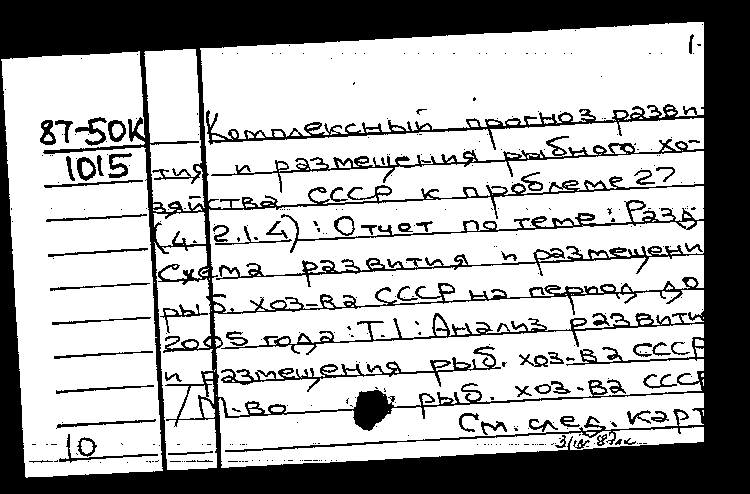 1.
87-50К Комплексный прогноз разви-
1015 тия и размещения рыбного хо-
зяйства СССР к проблеме 27
(4.2.1.4) : Отчет по теме : Разд.
Схема развития и размещени
рыб. хоз-ва СССР на период до
2005 года : Т.1 : Анализ развити
и размещения рыб. хоз-ва СССР
/ М-во рыб. хоз-ва СССР
См. след. карт
10